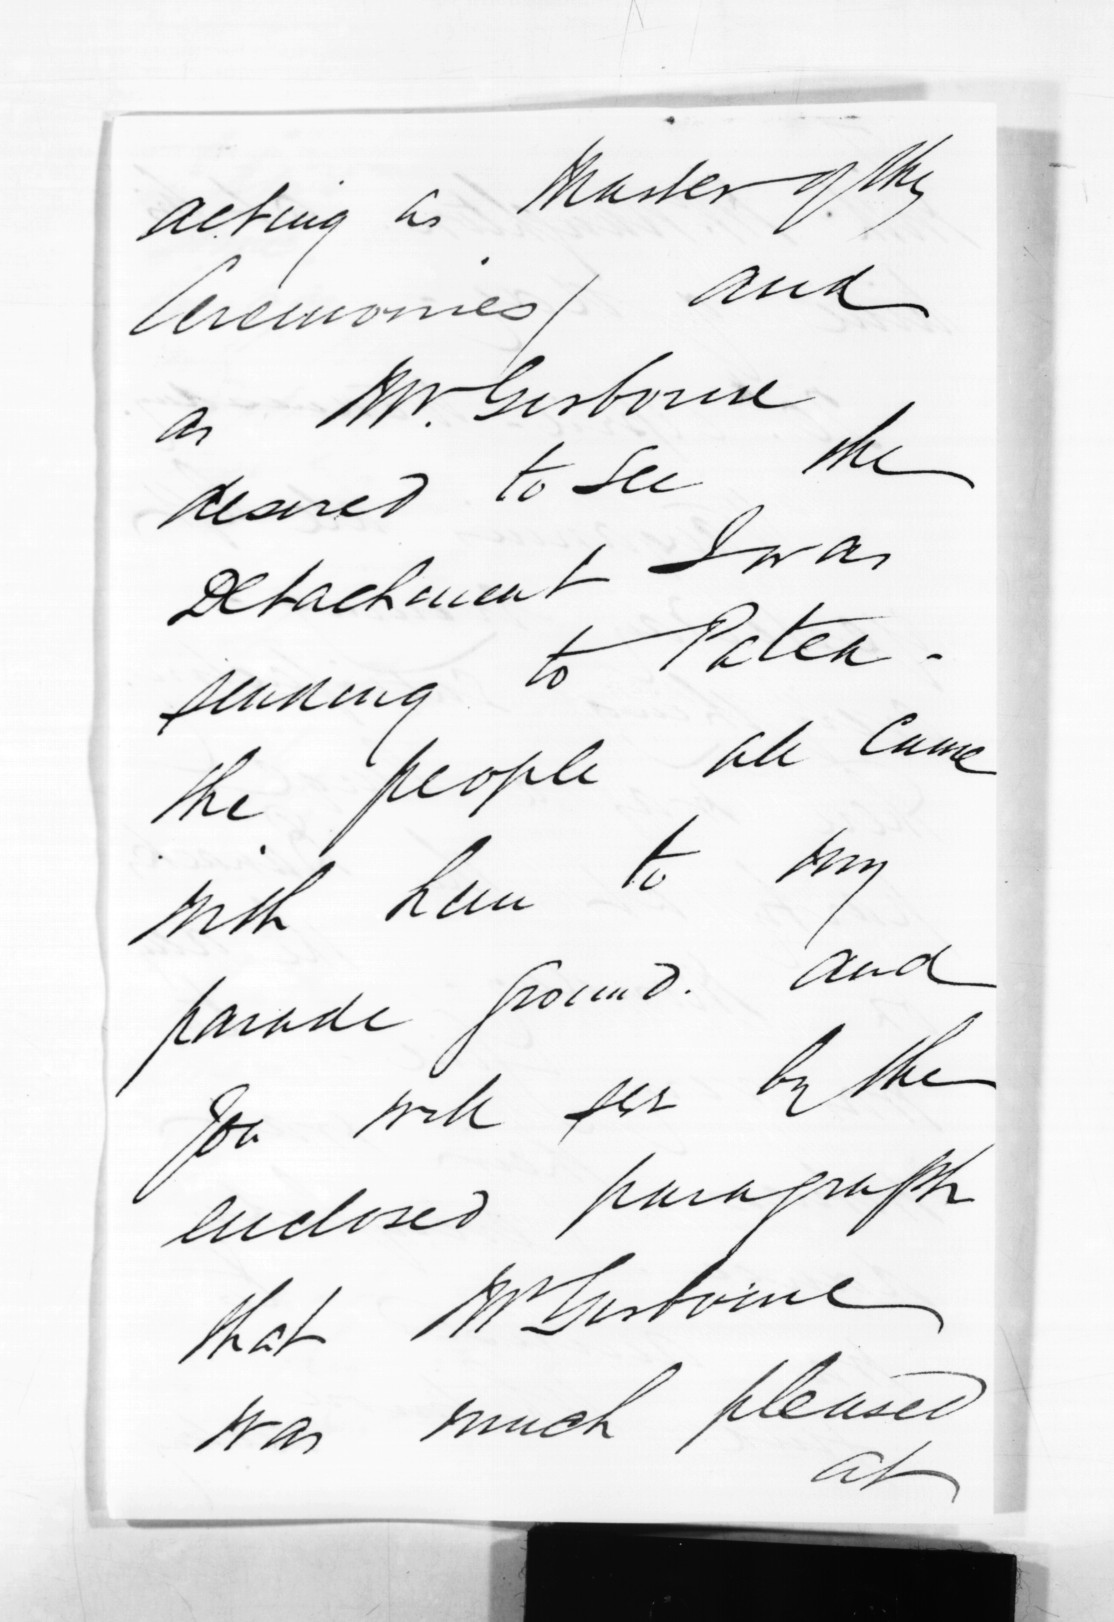 acting as Master of the
Ceremonies/ and
as Mr. Gisborne
desired to see the
Detachment I was
sending to Patea -
the people all came
with him to my
parade ground. and
you will see by the
enclosed paragraph
that Mr Gisborne
was much pleased
at